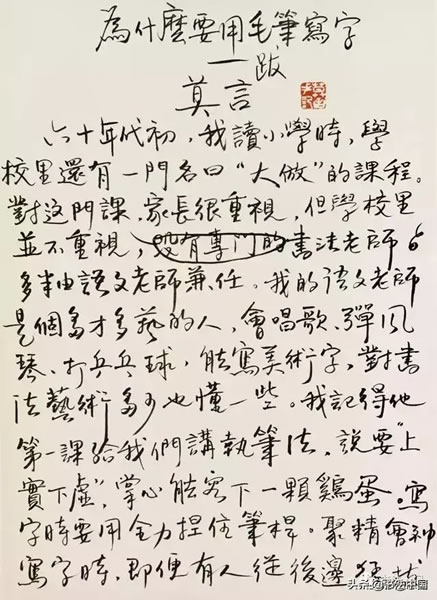 為什麼要用毛筆寫字
一跋
莫言
六十年代初，我讀小學時，學
校里還有一門名曰“大倣”的課程。
對这門課，家長很重視，但學校里
並不重視，没有專門的書法老師，
多半由語文老師兼任。我的语文老師
是個多才多藝的人，會唱歌、彈风
琴、打乒乓球，能寫美術字，對書
法藝術多少也懂一些。我記得他
第一課给我們講執筆法，説要“上
實下虛”，掌心能容下一顆鷄蛋。寫
字時要用全力捏住筆桿。聚精會神
寫字時，即便有人從後邊
头条